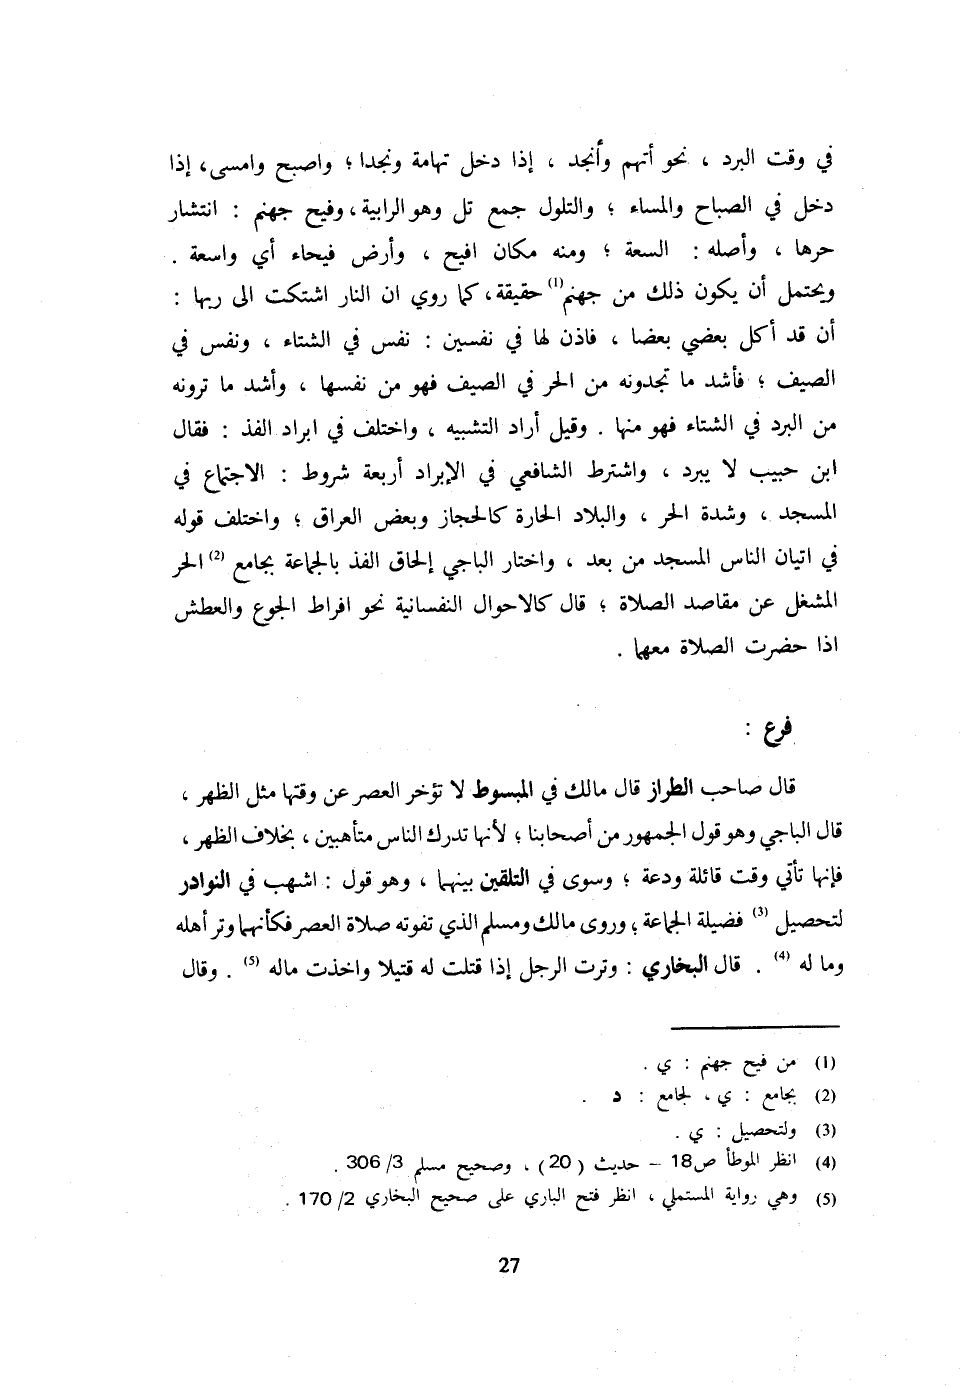 في وقت البرد ، نحو أتهم وأنجد ، إذا دخل تهامة ونجدا ؛ واصبح وامسى، إذا
دخل في الصباح والمساء ؛ والتلول جمع تل وهو الرابية ، وفيح جهنم : انتشار
حرها ، وأصله : السعة ؛ ومنه مكان افيح ، وأرض فيحاء أي واسعة .
ويحتمل أن يكون ذلك من جهنم(1) حقيقة، كما روي ان النار اشتكت الى ربها :
أن قد أكل بعضي بعضا ، فاذن لها في نفسين : نفس في الشتاء ، ونفس في
الصيف ؛ فأشد ما تجدونه من الحر في الصيف فهو من نفسها ، وأشد ما ترونه
من البرد في الشتاء فهو منها . وقيل أراد التشبيه ، واختلف في ابراد الفذ : فقال
ابن حبيب لا يبرد ، واشترط الشافعي في الإبراد أربعة شروط : الاجتماع في
المسجد ، وشدة الحر ، والبلاد الحارة كالحجاز وبعض العراق ؛ واختلف قوله
في اتيان الناس المسجد من بعد ، واختار الباجي إلحاق الفذ بالجماعة بجامع (2) الحر
المشغل عن مقاصد الصلاة ؛ قال كالاحوال النفسانية نحو افراط الجوع والعطش
اذا حضرت الصلاة معهما .
فرع :
قال صاحب الطراز قال مالك في المبسوط لا تؤخر العصر عن وقتها مثل الظهر ،
قال الباجي وهو قول الجمهور من أصحابنا ؛ لأنها تدرك الناس متأهبين ، بخلاف الظهر ،
فإنها تأتي وقت قائلة ودعة ؛ وسوى في التلقين بينهما ، وهو قول : اشهب في النوادر
لتحصيل (3) فضيلة الجماعة ؛ وروى مالك ومسلم الذي تفوته صلاة العصر فكأنهما وتر أهله
وما له (4) . قال البخاري : وترت الرجل إذا قتلت له قتيلا واخذت ماله (5) . وقال
(1) من فيح جهنم : ي .
(2) بجامع : ي ، لجامع : د .
(3) ولتحصيل : ي .
(4) انظر الموطأ ص18 – حديث ( 20 ) ، وصحيح مسلم 3/ 306 .
(5) وهي رواية المستملي ، انظر فتح الباري على صحيح البخاري 2/ 170 .
27